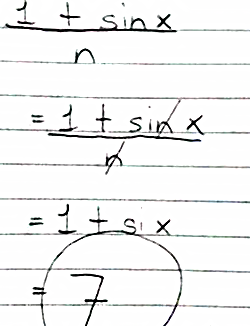 1 + sinx
n
= 1 + sinx
n
= 1 + six
= 7